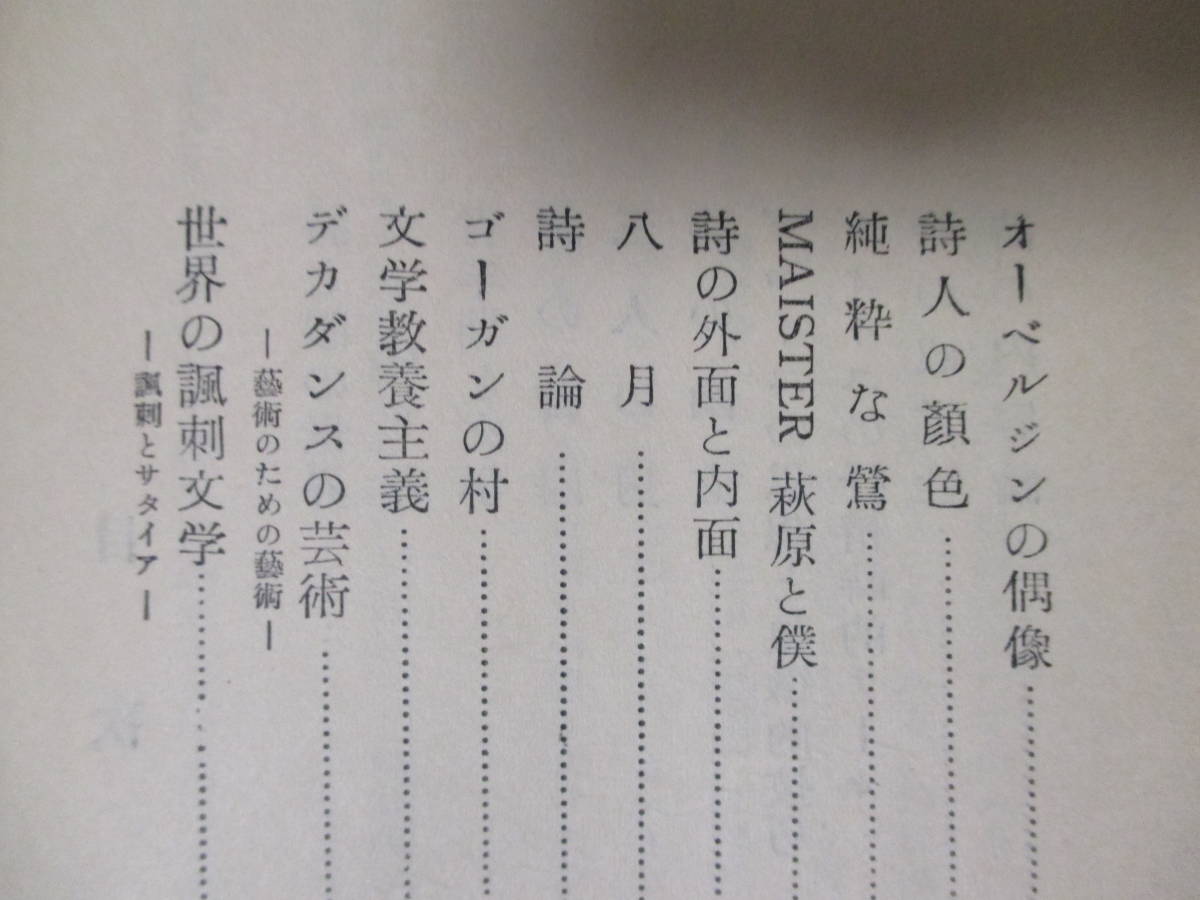 オーベルジンの偶像
詩人の顏色
純粋な鶯
MAISTER 萩原と僕
詩の外面と内面
八月
詩論
ゴーガンの村
文学教養主義
デカダンスの芸術
―藝術のための藝術―
世界の諷刺文学
―諷刺とサタイア―